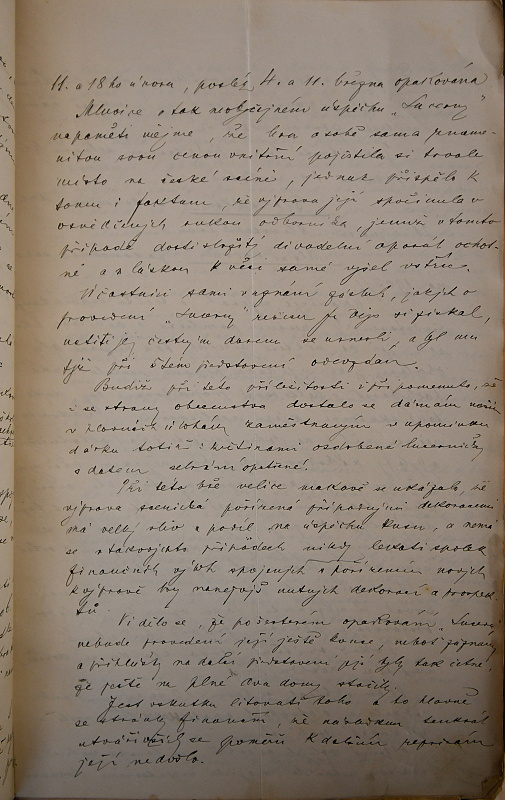 11. a 18ho února, posléz 4. a 11. března opakována
Mluvíce o tak neobyčejném úspěchu „Lucerny"
napaměti mějme, že hra o sobě sama zname-
nitou svou cenou vnitřní pojistila si trvale
místo na české scéně, jednak přispělo k
tomu i faktum, že výprava její spočinula v
osvědčených rukou odborníka, jemuž v tomto
případě dosti složitý divadelní aparát ochot-
ně a s láskou k věci samé vyšel vstříc.
Účastníci sami v uznání zásluh, jakých o
provedení „Lucerny" si získal,
uctíti jej čestným darem se usnesli, a byl mu
týž při čtém představení odevzdán.
Budiž při této příležitosti i připomenuto, že
i se strany obecenstva dostalo se dámám našim
v hlavních úlohách zaměstnaným v upomínku
dárku totiž květinami ozdobené lucerničky
s datem opatřené.
Při této hře velice markově se ukázalo, že
výprava scenická pořízená případnými dekoracemi
má velký vliv a podíl na úspěchu kusu, a nemá
se v takovýchto případech nikdy lekati spolek
finančních výloh spojených s pořízením nových
k výpravě hry nutných dekorací a prospek-
tů.
Vidělo se, že po čtvrtém opakování „Lucerny
nebude provedení její ještě konec, neboť záznamy
a přihlášky na další představení její byly tak četné,
že ještě na plné dva domy stačily.
Jest vskutku litovati toho a to hlavně
se stránky finanční, že následkem tenkrát
se poměrů k dalším reprisám
její nedošlo.